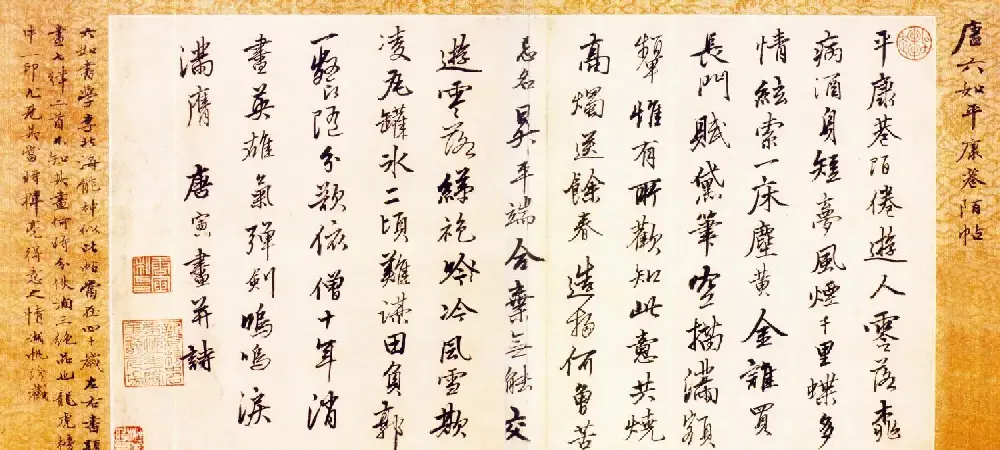 唐六如平康巷陌帖
平康巷陌倦遊人零落桃
病酒身短夢風煙千里蝶多
情絃索一床塵黄金誰買
長門賦黛筆空描滿額
顰惟有所歡知此意共燒
高燭送餘春造物何曾苦
忌名昇平端合棄無能交
遊零落綈袍冷風雪欺
凌瓦罐冰二頃難謀田負郭
一餐隨分欲依僧十年消
畫英雄氣彈劍嗚嗚淚
滿膺 唐寅畫并詩
六如書學李北海能神似此帖當在四十歲左右書題
畫七律二首不知其畫何時分佚洵三絶品也龍虎榜
中一印尤見其當時揮毫得意之情湖帆觀